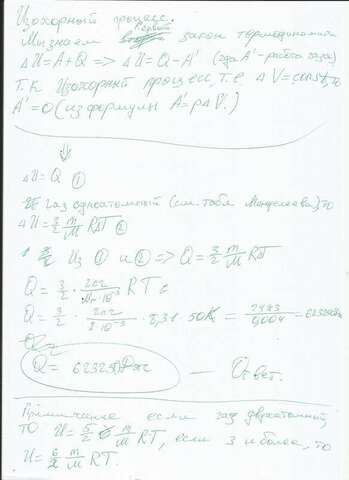 Изохорный процесс.
Мы знаем первый закон термодинамики
ΔU=A+Q => ΔU=Q-A' (где A'-работа газа)
Т.К Изохорный процесс, т.е. ΔV=const, то
A'=0 (из формулы A'=pΔV.)
⇓
ΔU=Q ①
газ одноатомный (см. табл Менделеева), то
ΔU=3/2 m/M RΔT ②
Из ① и ② => Q=3/2 m/M RΔT
Q=3/2 ·
Q=3/2 · 8,31·50K =
Q= 62325Дж — Ответ.
Примечание если газ двухатомный,
то U=5/2 m/M RT, если 3 и более, то
U=6/2 m/M RT.